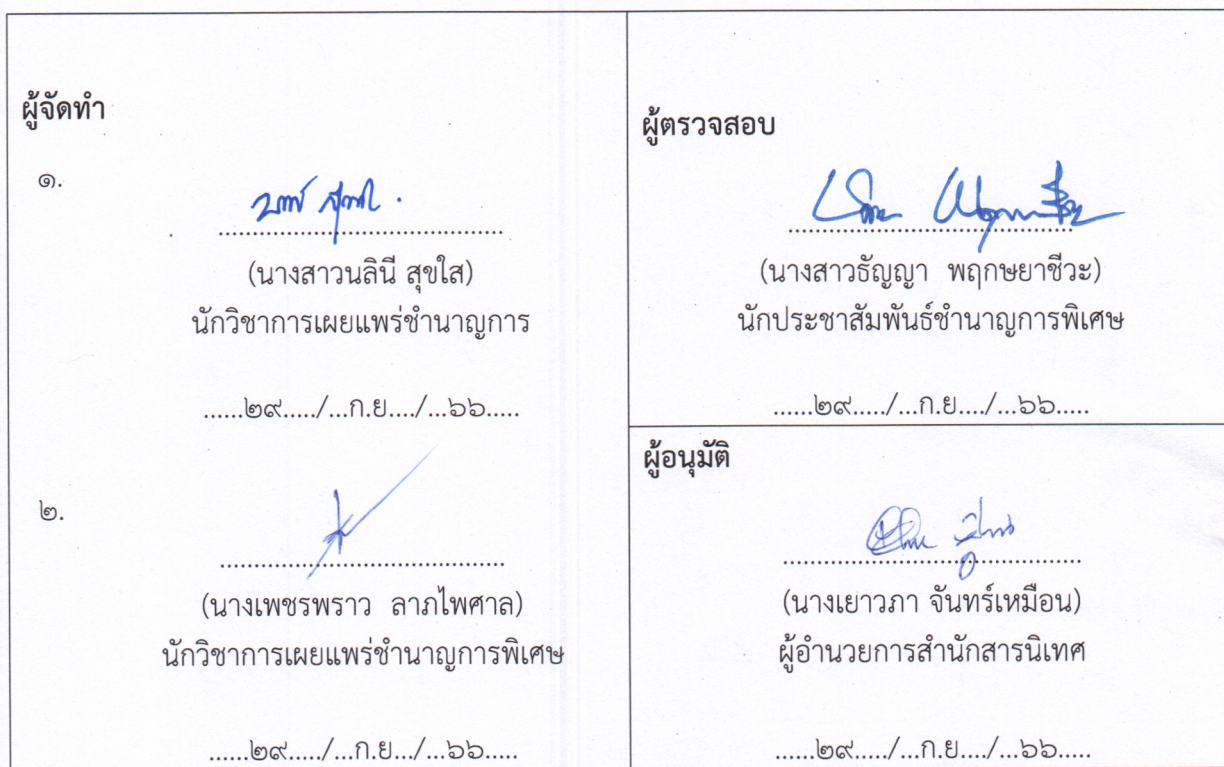 ผู้จัดทำ
๑.
...............................
(นางสาวนลินี สุขใส)
นักวิชาการเผยแพร่ชำนาญการ
......๒๙...../...ก.ย..../...๖๖.....
๒.
...............................
(นางเพชรพราว ลาภไพศาล)
นักวิชาการเผยแพร่ชำนาญการพิเศษ
......๒๙...../...ก.ย.../...๖๖.....
ผู้ตรวจสอบ
...............................
(นางสาวธัญญา พฤกษยาชีวะ)
นักประชาสัมพันธ์ชำนาญการพิเศษ
......๒๙...../...ก.ย..../...๖๖.....
ผู้อนุมัติ
.................................
(นางเยาวภา จันทร์เหมือน)
ผู้อำนวยการสำนักสารนิเทศ
......๒๙...../...ก.ย..../...๖๖.....